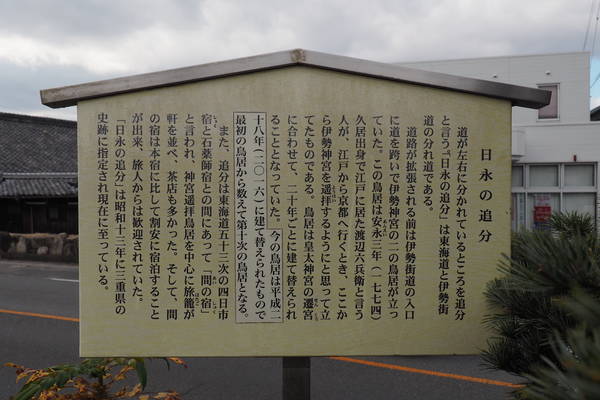 日永の追分
道が左右に分かれているところを追分
と言う『日永の追分』は東海道と伊勢街
道の分れ道である。
道路が拡張される前は伊勢街道の入口
に道を跨いで伊勢神宮の二の鳥居が立っ
ていた。この鳥居は安永三年(一七七四)
久居出身で江戸に居た渡辺六兵衛と言う
人が、江戸から京都へ行くとき、ここか
ら伊勢神宮を遥拝するようにと思って立
てたものである。鳥居は皇太神宮の遷宮
に合わせて、二十年ごとに建て替えられ
ることとなっていた。今の鳥居は平成二
十八年(二〇一六)に建て替えられたもので
最初の鳥居から数えて第十次の鳥居となる。
また、追分は東海道五十三次の四日市
宿と石薬師宿との間にあって「間の宿」
と言われ、神宮遥拝鳥居を中心に旅籠が
軒を並べ、茶店も多かった。そして、間
の宿は本宿に比して割安に宿泊すること
が出来、旅人からは歓迎されていた。
「日永の追分」は昭和十三年に三重県の
史跡に指定され現在に至っている。